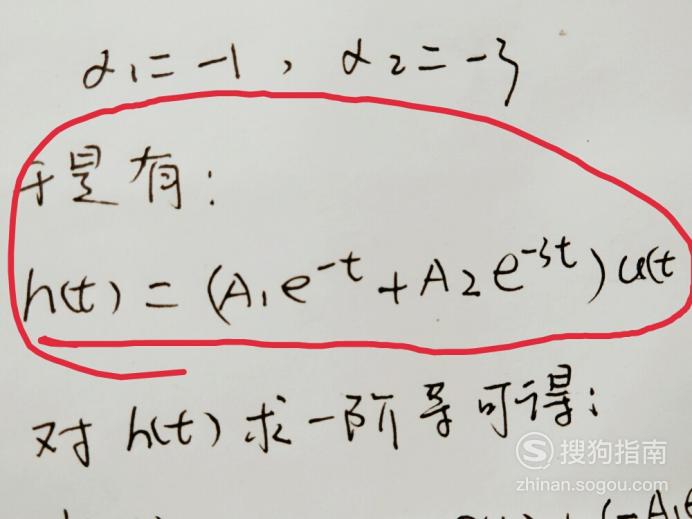 α₁=-1，α₂=-3
于是有：
h(t)=(A₁e^{-t}+A₂e^{-3t})u(t
对h(t)求一阶导可得：
搜狗指南
zhinan.sogou.com